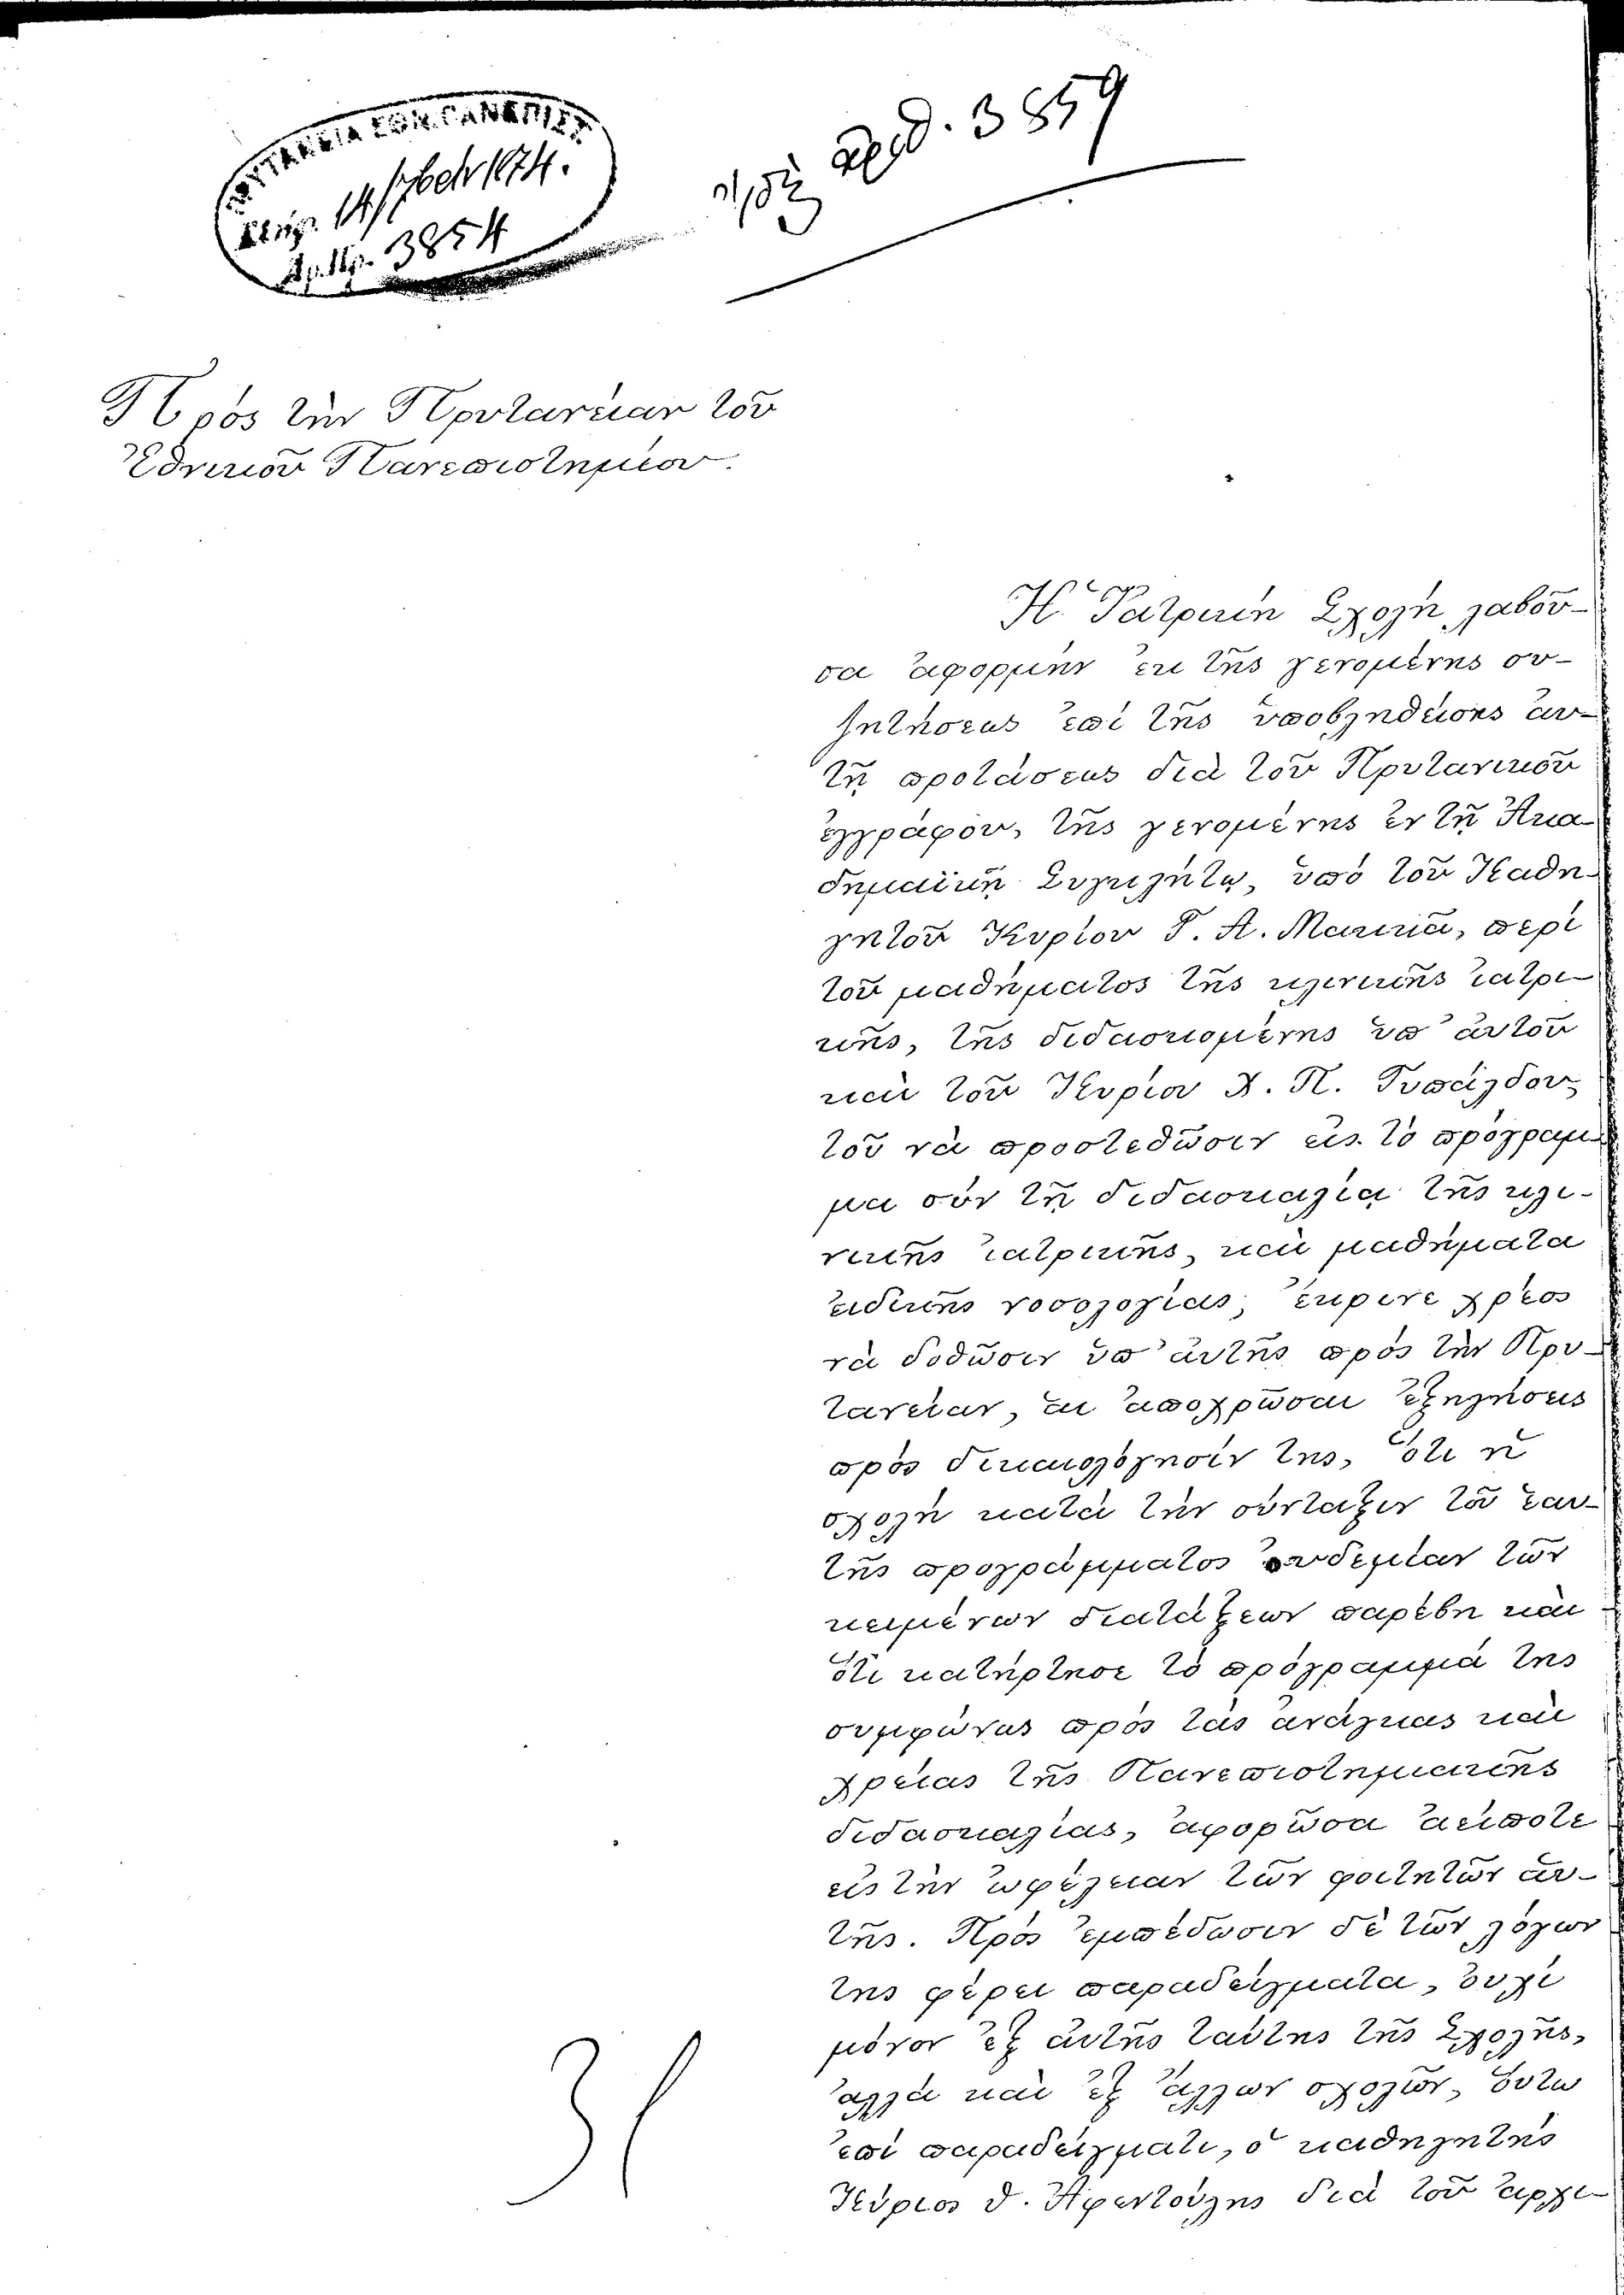 ΠΡΥΤΑΝΕΙΑ ΕΘΝ. ΠΑΝΕΠΙΣΤ
Ελήφ. 14/7βρ 1874.
Αρ. Πρ. 3854
αριθ. 3859
Πρός τήν Πρυτανείαν τοῦ
Ἐθνικοῦ Πανεπιστημίου.
Ἡ Ἰατρική Σχολή, λαβοῦ-
σα ἀφορμήν ἐκ τῆς γενομένης συ-
ζητήσεως ἐπί τῆς ὑποβληθείσης αὐ-
τῇ προτάσεως διά τοῦ Πρυτανικοῦ
ἐγγράφου, τῆς γενομένης ἐν τῇ Ἀκα-
δημαϊκῇ Συγκλήτῳ, ὑπό τοῦ Καθη-
γητοῦ Κυρίου Γ. Α. Μακκᾶ, περί
τοῦ μαθήματος τῆς κλινικῆς ἰατρι-
κῆς, τῆς διδασκομένης ὑπ' αὐτοῦ
καί τοῦ Κυρίου Χ. Π. Τυπάλδου,
τοῦ νά προστεθῶσιν εἰς τό πρόγραμ-
μα σύν τῇ διδασκαλίᾳ τῆς κλι-
νικῆς ἰατρικῆς, καί μαθήματα
εἰδικῆς νοσολογίας, ἔκρινε χρέος
νά δοθῶσιν ὑπ' αὐτῆς πρός τήν Πρυ-
τανείαν, αἱ ἀποχρῶσαι ἐξηγήσεις
πρός δικαιολόγησίν της, ὅτι ἡ
σχολή κατά τήν σύνταξιν τοῦ ἑαυ-
τῆς προγράμματος οὐδεμίαν τῶν
κειμένων διατάξεων παρέβη καί
ὅτι κατήρτησε τό πρόγραμμά της
συμφώνως πρός τάς ἀνάγκας καί
χρείας τῆς Πανεπιστημιακῆς
διδασκαλίας, ἀφορῶσα ἀείποτε
εἰς τήν ὠφέλειαν τῶν φοιτητῶν αὐ-
τῆς. Πρός ἐμπέδωσιν δέ τῶν λόγων
της φέρει παραδείγματα, οὐχί
μόνον ἐξ αὐτῆς ταύτης τῆς Σχολῆς,
ἀλλά καί ἐξ ἄλλων σχολῶν, οὕτω
ἐπί παραδείγματι, ὁ καθηγητής
Κύριος Θ. Ἀφεντούλης διά τοῦ ἀρχι-
31